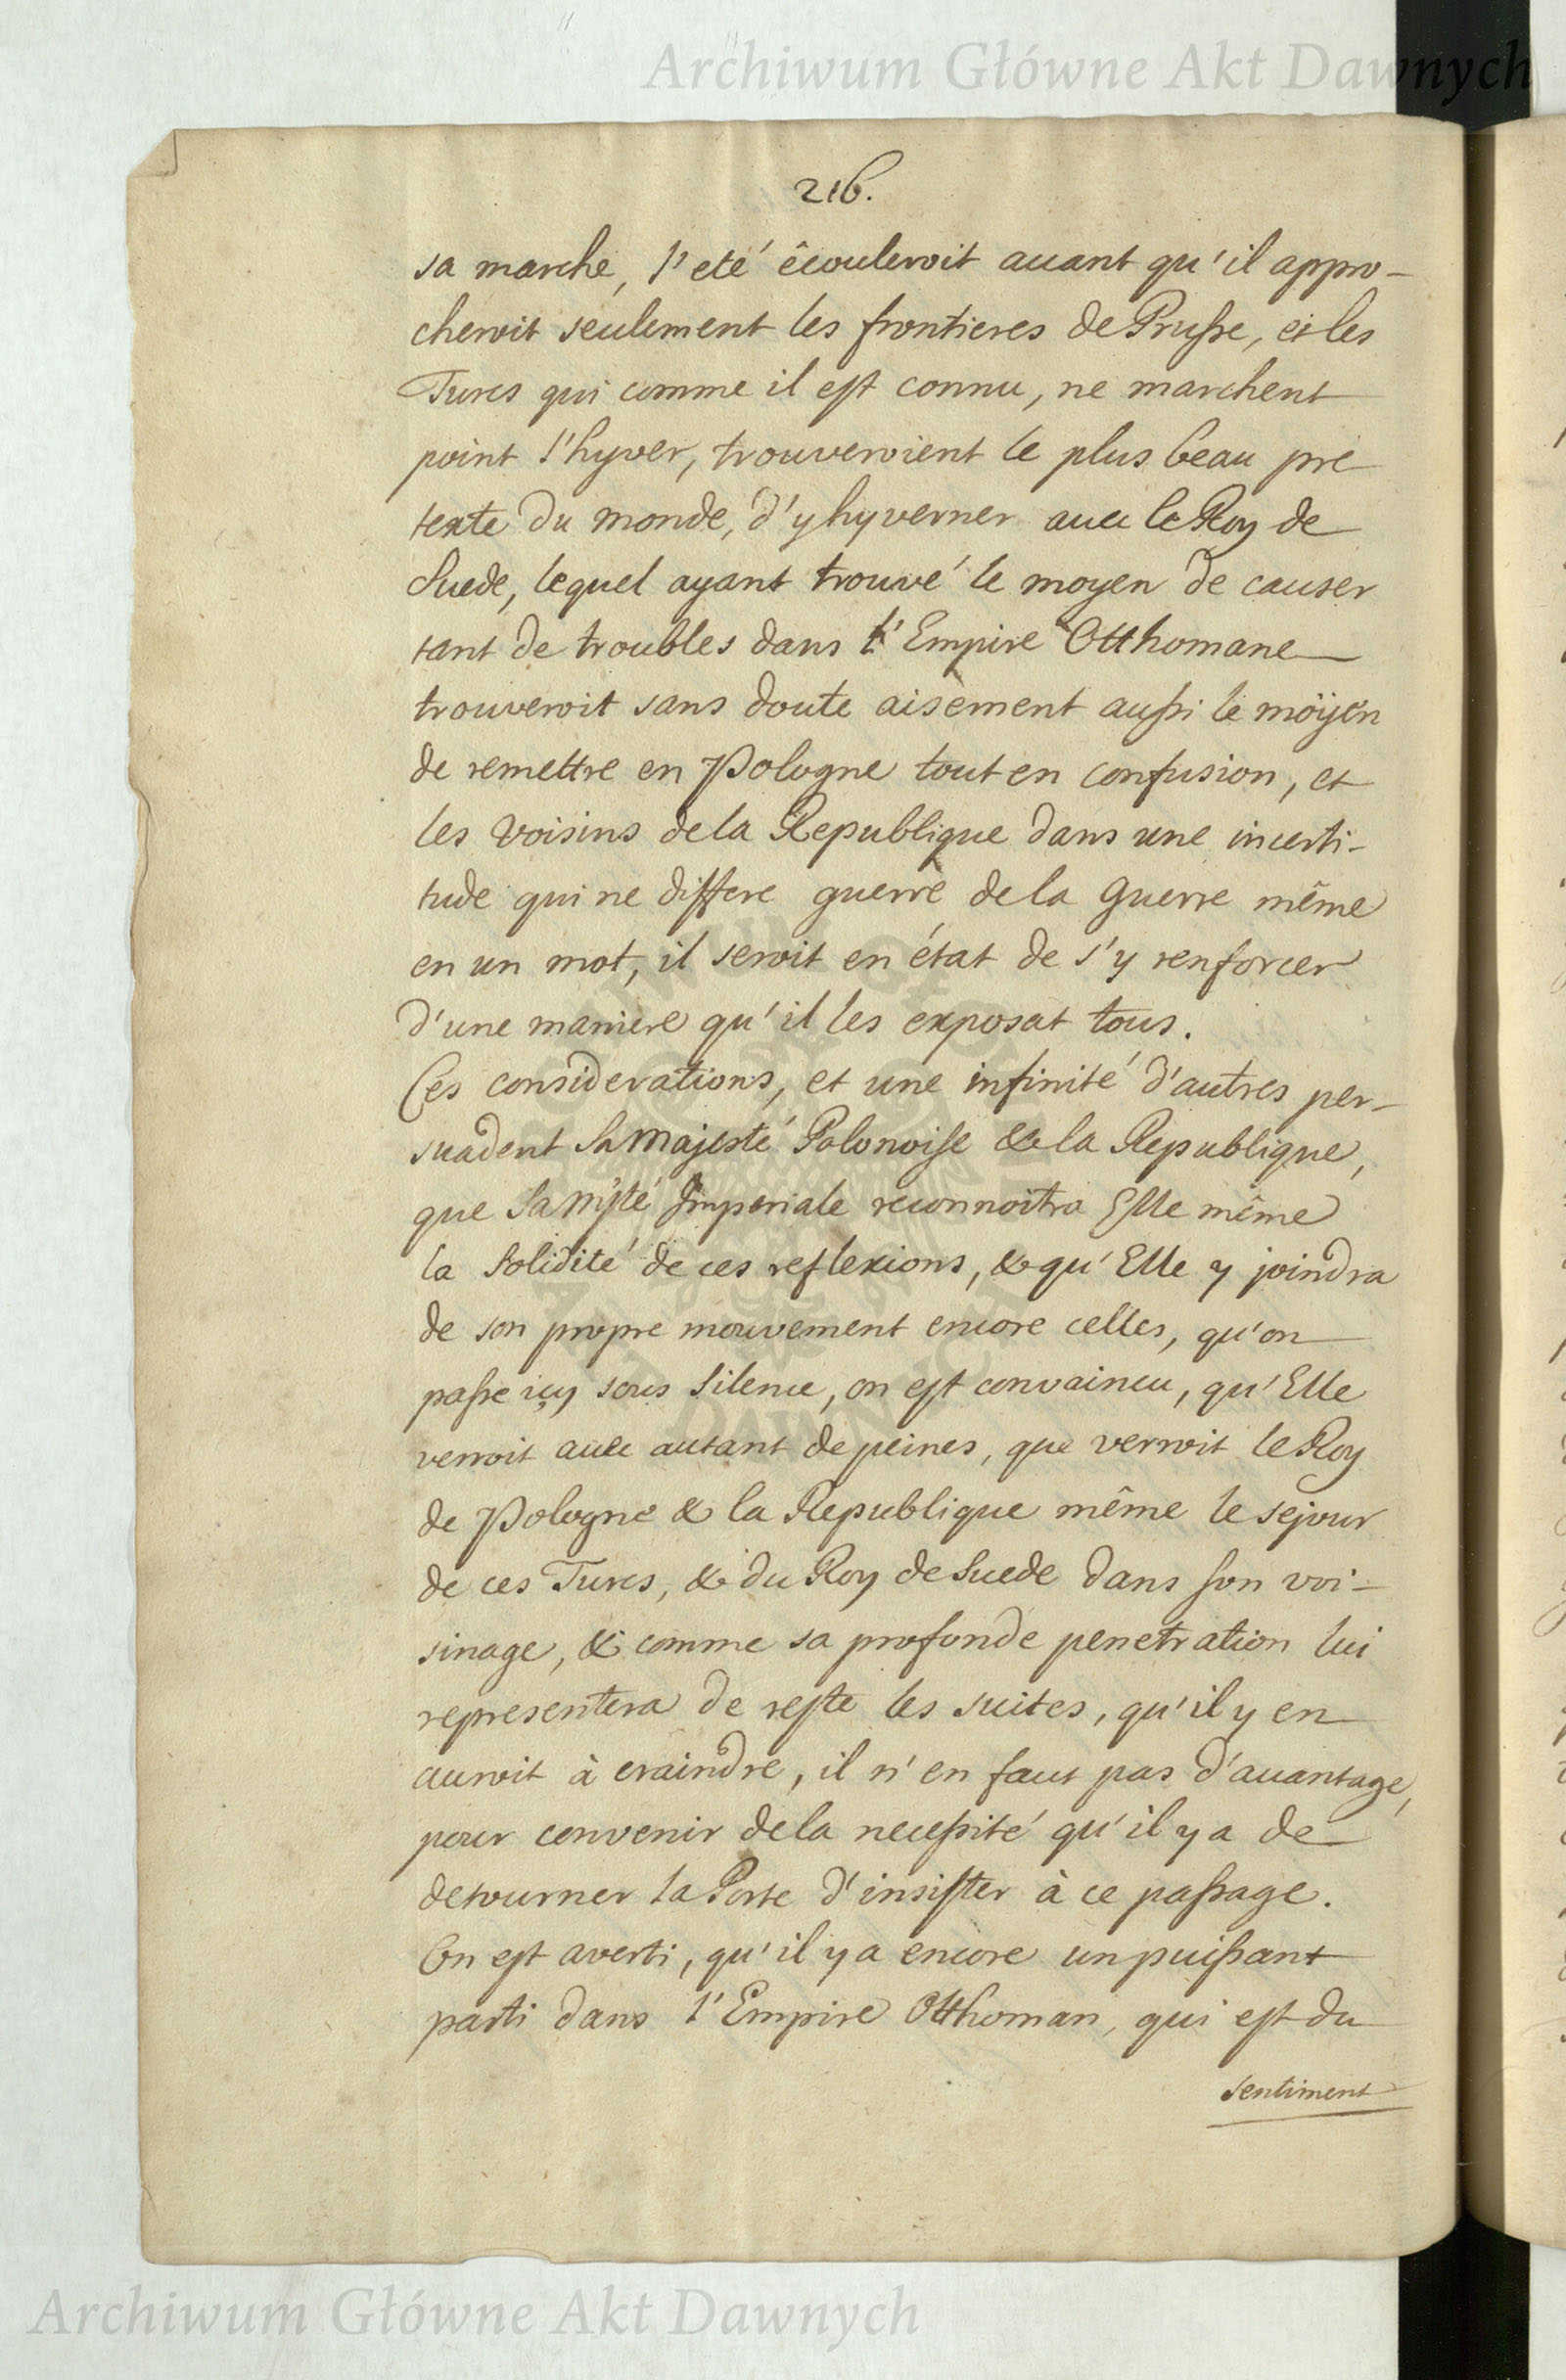 Archiwum Główne Akt Dawnych
216.
sa marche, l'eté êcouleroit auant qu'il appro-
cheroit seulement les frontieres de Prusse, et les
Turcs qui comme il est connu, ne marchent
point l'hyver, trouveroient le plus beau pre
texte du monde, d'y hyverner auec le Roy de
Suede, lequel ayant trouvé le moyen de causer
tant de troubles dans l'Empire Otthomane
trouveroit sans doute aisèment aussi le möÿen
de remettre en Pologne tout en confusion, et
les voisins de la Republique dans une incerti-
tude qui ne differe guerre de la guerre même
en un mot, il seroit en état de s'y renforcer
d'une maniere qu'il les exposat tous.
Ces considerations, et une infinité d'autres per-
suadent Sa Majesté Polonoise & la Republique,
que Sa Mjté Imperiale reconnoitra Elle même
la solidité de ces reflexions, & qu'Elle y joindra
de son propre mouvement encore celles, qu'on
passe icy sous silence, on est convaincu, qu'Elle
verroit auec autant de peines, que verroit le Roy
de Pologne & la Republique même le sejour
de ces Turcs, & du Roy de Suede dans son voi-
sinage, & comme sa profonde penetration lui
representera de reste les suites, qu'il y en
auroit à craindre, il n'en faut pas d'auantage,
pour convenir de la necessité qu'il y a de
detourner la Porte d'insister à ce passage.
On est averti, qu'il y a encore un puissant
parti dans l'Empire Otthoman, qui est du
sentiment
Archiwum Główne Akt Dawnych